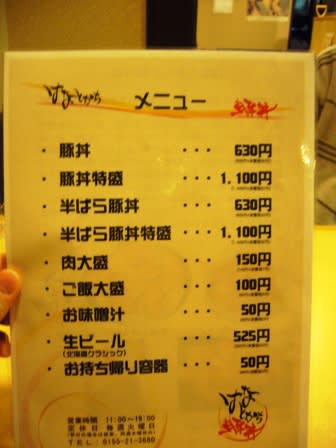 はなとかち メニュー 豚丼
・豚丼 ・・・ 630円
・豚丼特盛 ・・・ 1,100円
・半ばら豚丼 ・・・ 630円
・半ばら豚丼特盛 ・・・ 1,100円
・肉大盛 ・・・ 150円
・ご飯大盛 ・・・ 100円
・お味噌汁 ・・・ 50円
・生ビール ・・・ 525円
(北海道クラシック)
・お持ち帰り容器 ・・・ 50円
営業時間 11:00~19:00
定休日 毎週火曜日
TEL 0155-21-3680